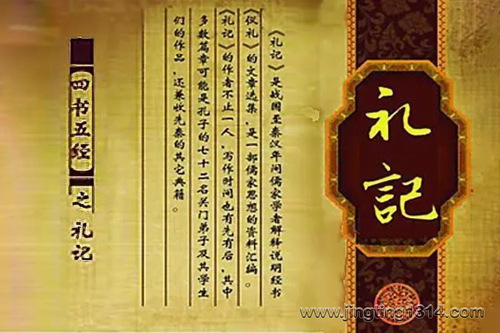 礼記
《礼记》是战国至秦汉年间儒家学者解释说明经书
《仪礼》的文章选集，是一部儒家思想的资料汇编。
《礼记》的作者不止一人，写作时间也有先有后，其中
多数篇章可能是孔子的七十二名关门弟子及其学生
们的作品，还兼收先秦的其它典籍。
四书五经 之 礼记